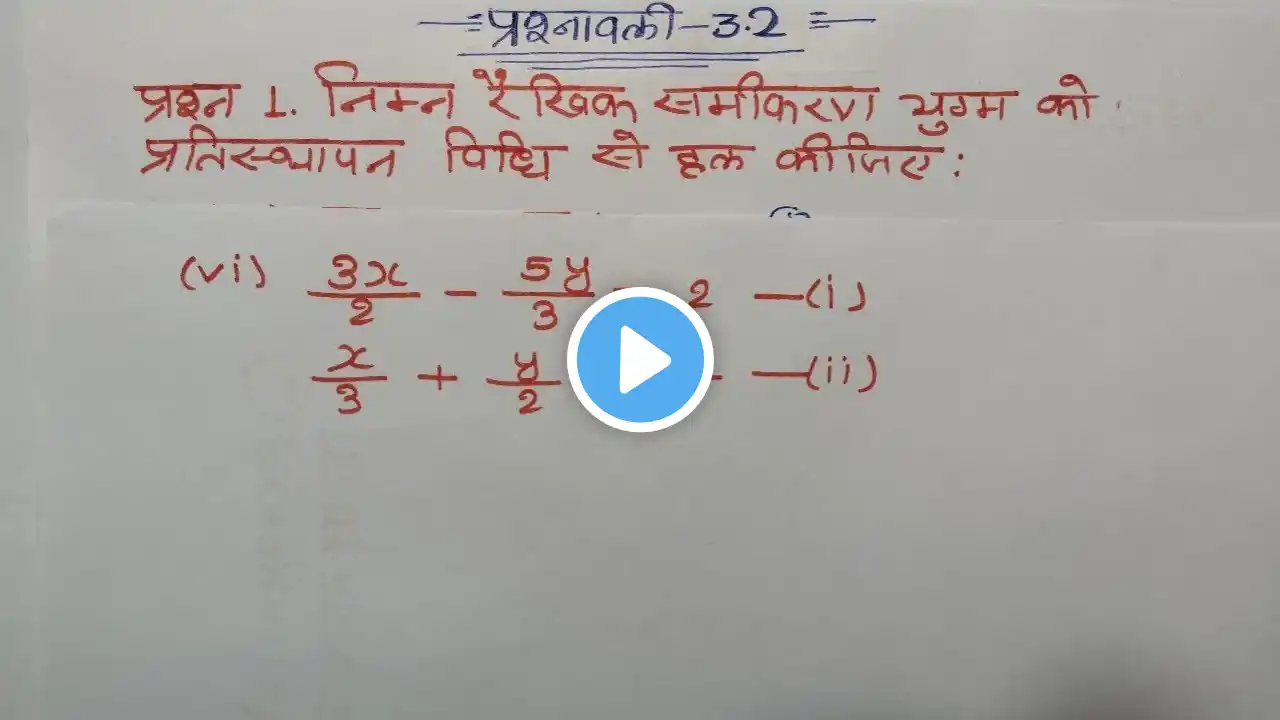 प्रश्नावली-3.2
प्रश्न 1. निम्न रैखिक समीकरण युग्म को
प्रतिस्थापन विधि से हल कीजिए:
(vi) 3x/2 - 5y/3 2 —(i)
x/3 + y/2 —(ii)